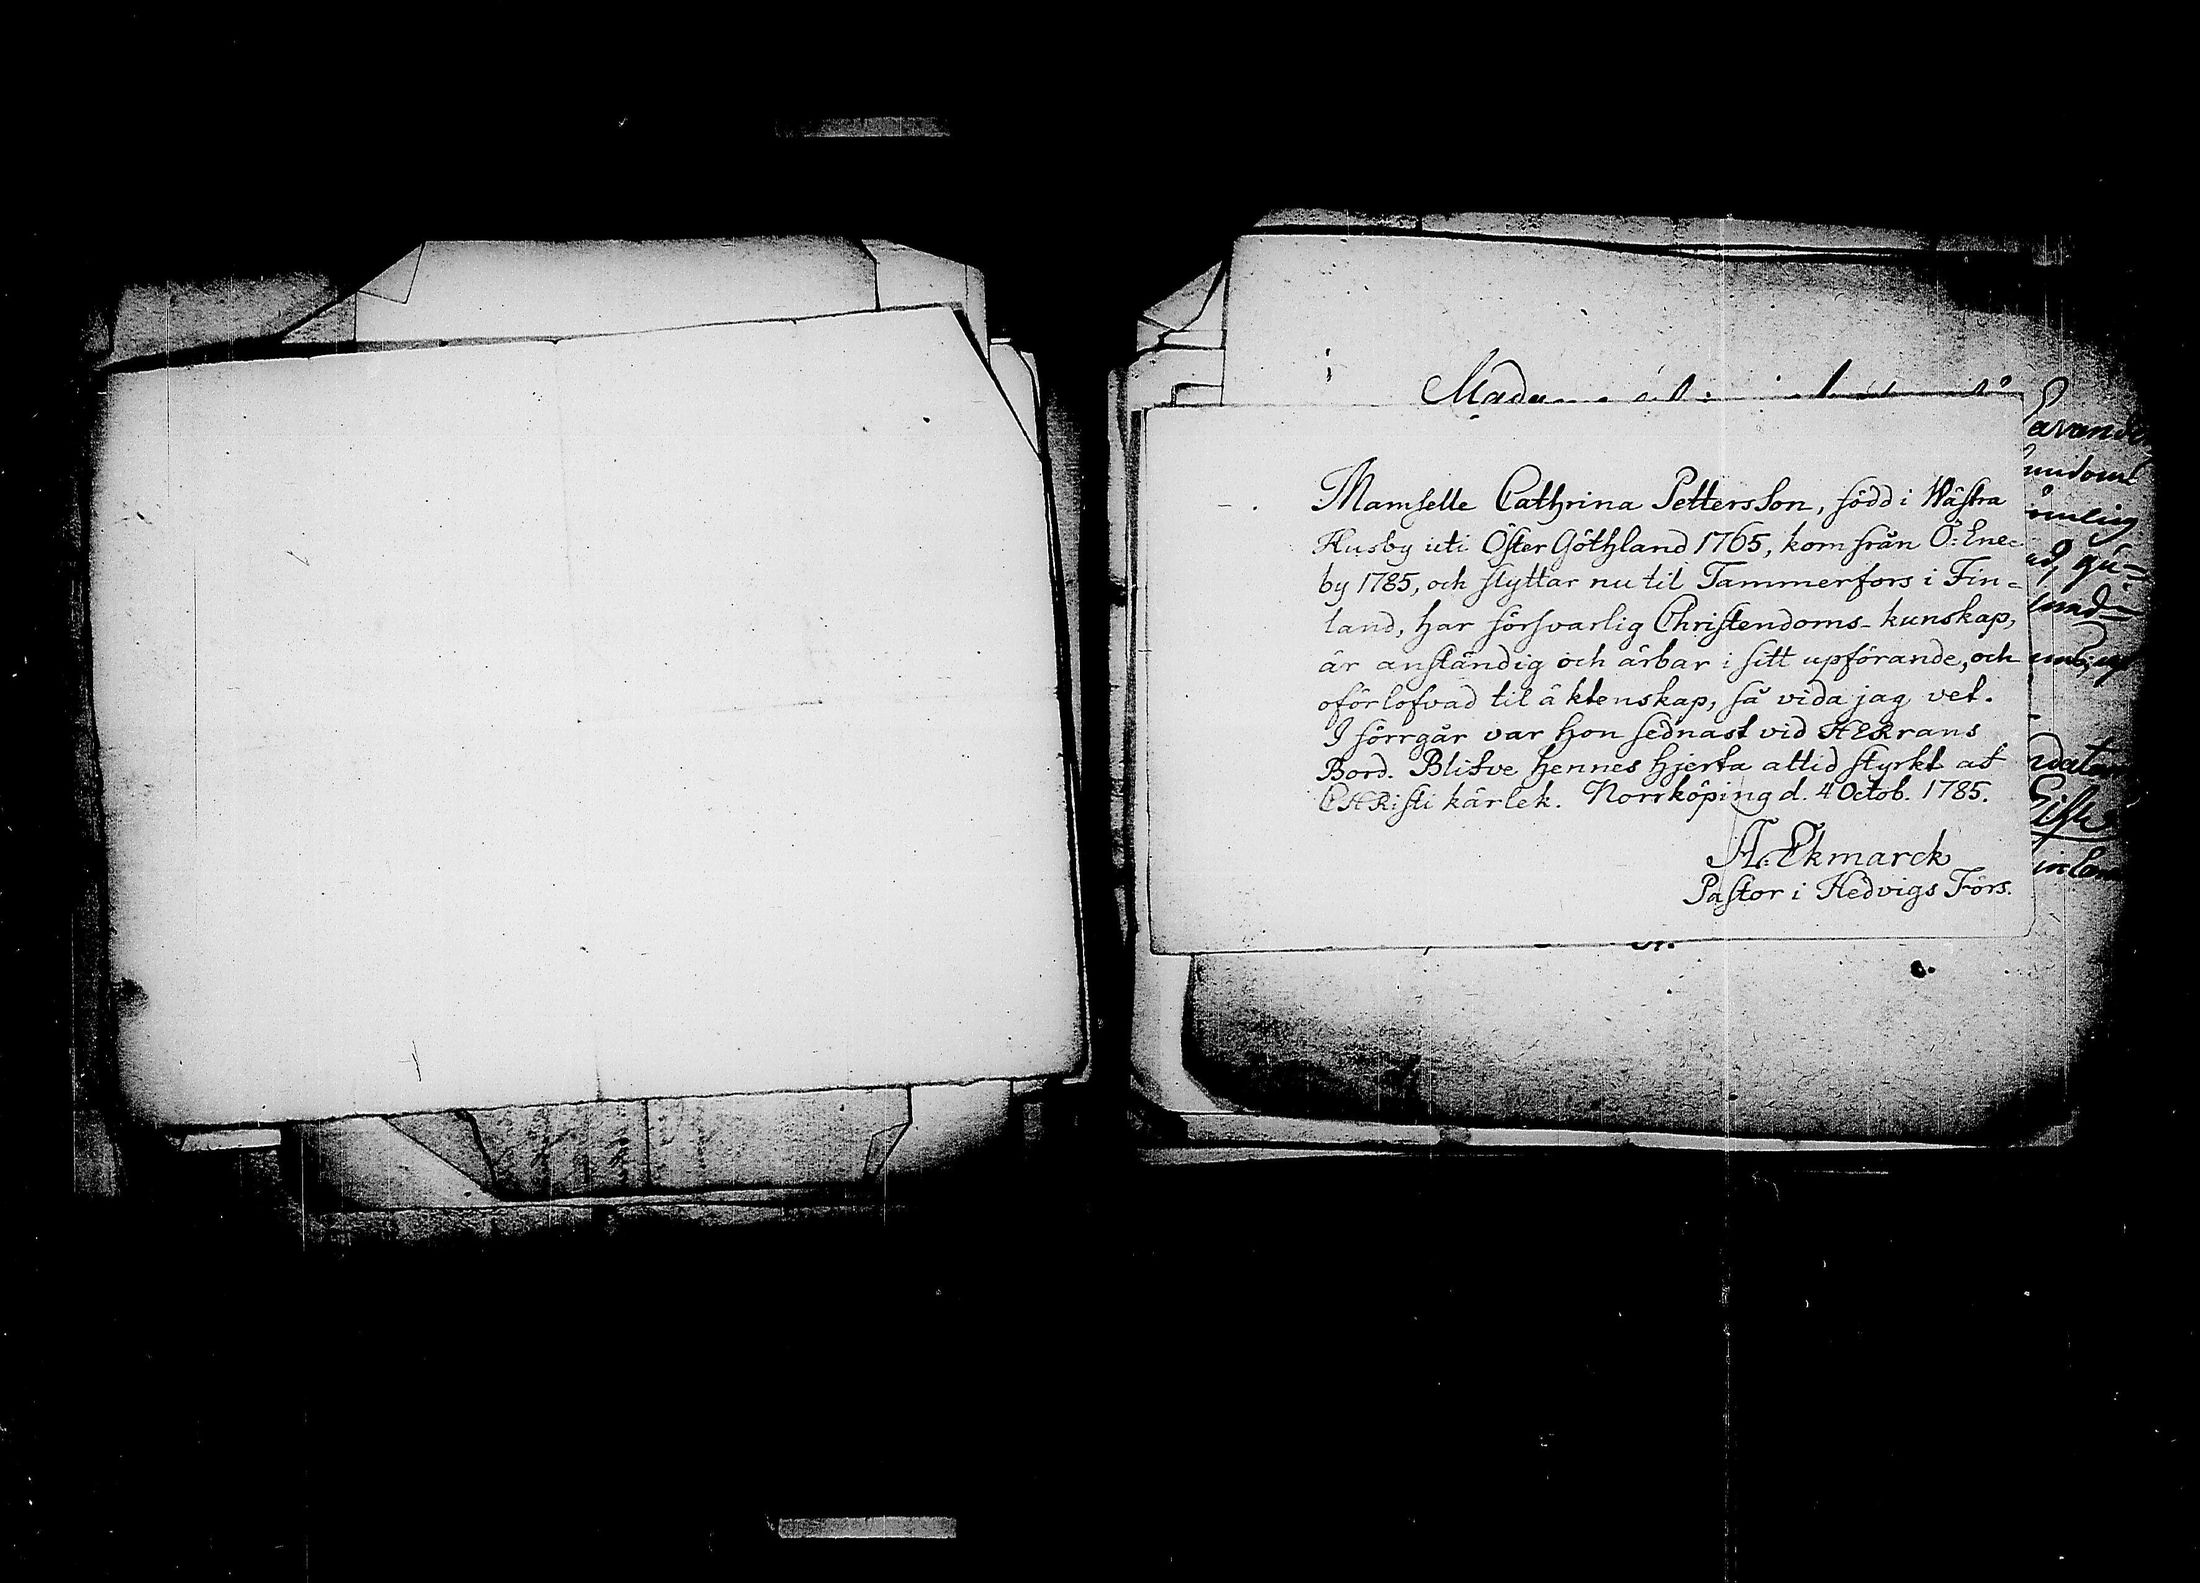 Mamselle Cathrina Pettersson, född i Wästra
Husby uti Öster Göthland 1765, kom från Ö: Ene-
by 1785, och flyttar nu til Tammerfors i Fin-
land, har försvarlig Christendoms-kunskap,
är anständig och ärbar i sitt upförande, och
oförlofvad til äktenskap, så vida jag vet.
I förrgår var hon sednast vid HERrans
Bord. Blifve hennes hjerta altid styrkt af
CHRisti kärlek. Norrköping d. 4 Octob. 1785.
A. Ekmarck
Pastor i Hedvigs Förs.